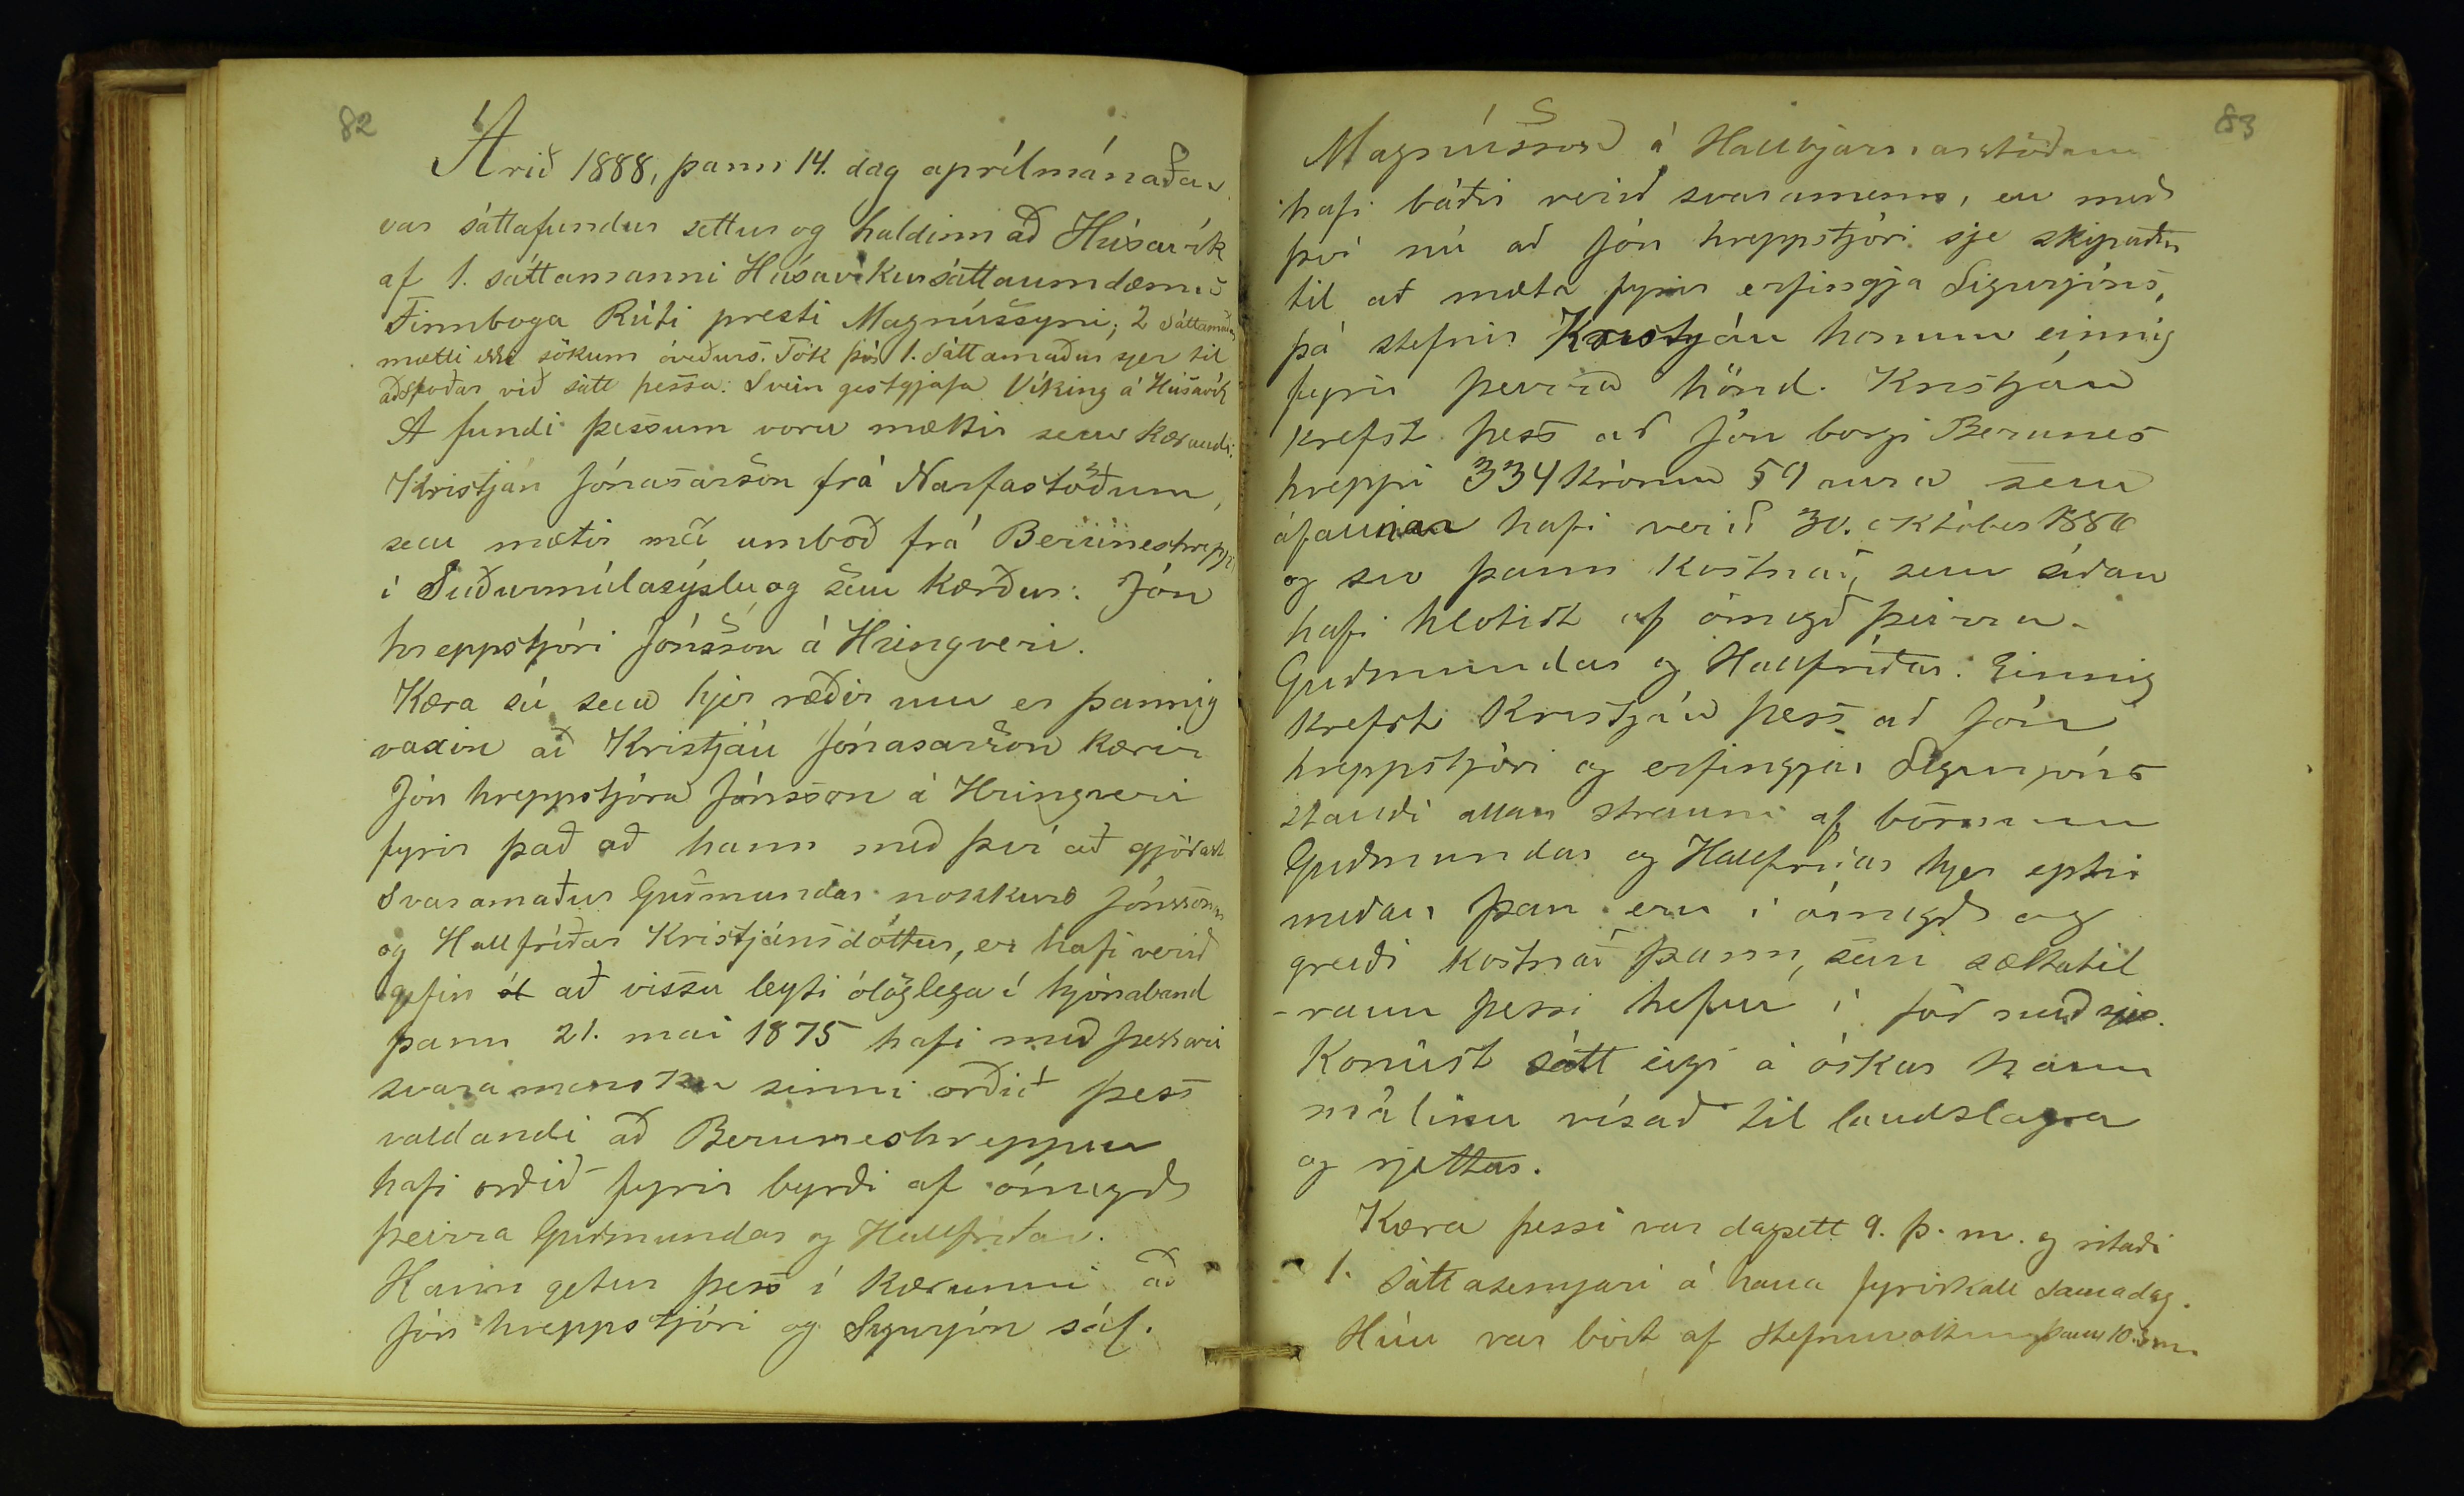 82
Árið 1888, þann 14. dag aprílmánaðar
var sáttafundur settur og haldinn að Húsavík
af 1. sáttamanni Húsavíkursáttaumdæmis
Finnboga Rúti presti Magnússyni; 2 sáttamaður
mætti ekki sökum óveðurs. Tók því 1. sáttamaður sjer til
aðstoðar við sátt þessa: Svein gestgjafa Víking á Húsavík
Á fundi þessum voru mættir sem kærandi:
Kristján Jónasarson frá Narfastöðum,
sem mætir með umboð frá Beruneshreppi
í Suðurmúlasýslu og sem kærður: Jón
hreppstjóri Jónsson á Hringveri.
Kæra sú sem hjer ræðir um er þannig
vaxin að Kristján Jónasarson kærir
Jón hreppstjóra Jónsson á Hringveri
fyrir það að hann með því að gjörast
svaramaður Guðmundar nokkurs Jónssonar
og Hallfríðar Kristjánsdóttur, er hafi verið
gefin út að vissu leyti ólöglega í hjónaband
þann 21. mai 1875 hafi með þessari
svaramensku sinni orðið þess
valdandi að Beruneshreppur
hafi orðið fyrir byrði af ómegð
þeirra Guðmundar og Hallfríðar.
Hann getur þess í kærunni að
Jón hreppstjóri og Sigurjón sál.
83
Magnússon á Hallbjarnarstöðum
hafi báðir verið svaramenn, en með
því nú að Jón hreppstjóri sje skipaður
til að mæta fyrir erfingja Sigurjóns,
þá stefnir Kristján honum einnig
fyrir þeirra hönd. Kristján
krefst þess að Jón borgi Berunes
hreppi 334 krónur 59 aura sem
áfallnar hafi verið 30. október 1886
og svo þann kostnað, sem síðan
hafi hlotist af ómegð þeirra
Guðmundar og Hallfríðar. Einnig
krefst Kristján þess að Jón
hreppstjóri og erfingjar Sigurjóns
standi allan straum af börnum
Guðmundar og Hallfríðar hjer eptir
meðan þau eru í ómegð og
greiði kostnað þann, sem sættatil
-raun þessi hefur í för með sjer.
Komist sátt eigi á óskar hann
málinu vísað til landslaga
og rjettar.
Kæra þessi var dagsett 9. þ. m. og ritaði
1. sáttasemjari á hana fyrirkall sama dag.
Hún var birt af stefnuvottum þann 10. s.m.